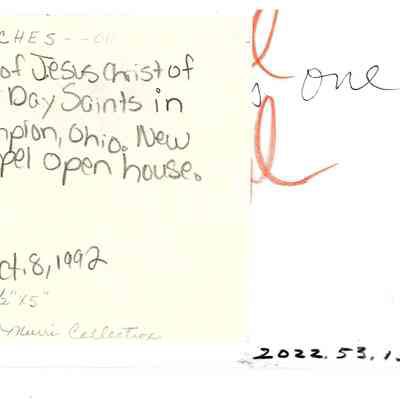 CHES--OH
of Jesus Christ of
Day Saints in
mpion, Ohio. New
pel open house.
ct. 8, 1992
½" x 5"
Collection
one
2022.53.1